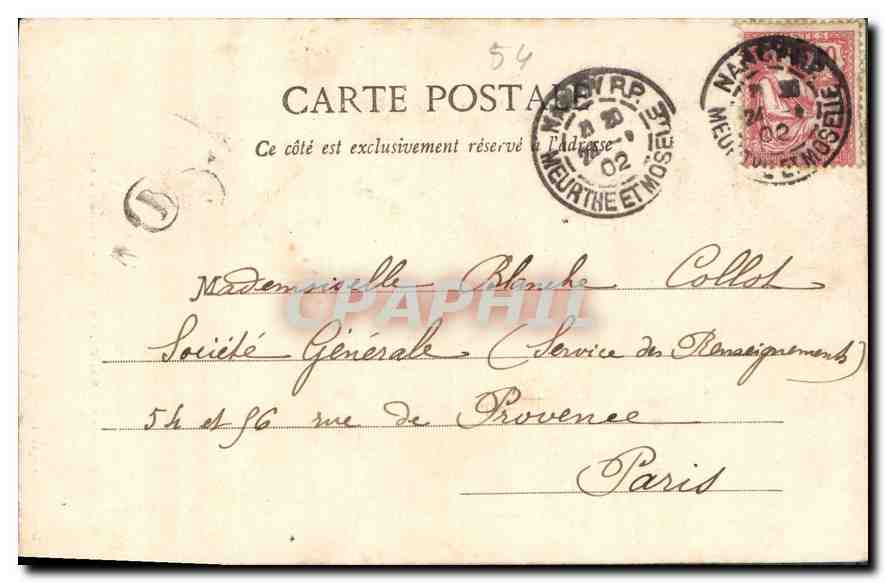 54
CARTE POSTALE
Ce côté est exclusivement réservé à l'Adresse
NANCY R.P.
02
MEURTHE ET MOSELLE
NANCY R.P.
24
02
MEURTHE ET MOSELLE
Mademoiselle Blanche Collot
CPAPHIL
Société Générale (Service des Renseignements)
54 et 56 rue de Provence
Paris